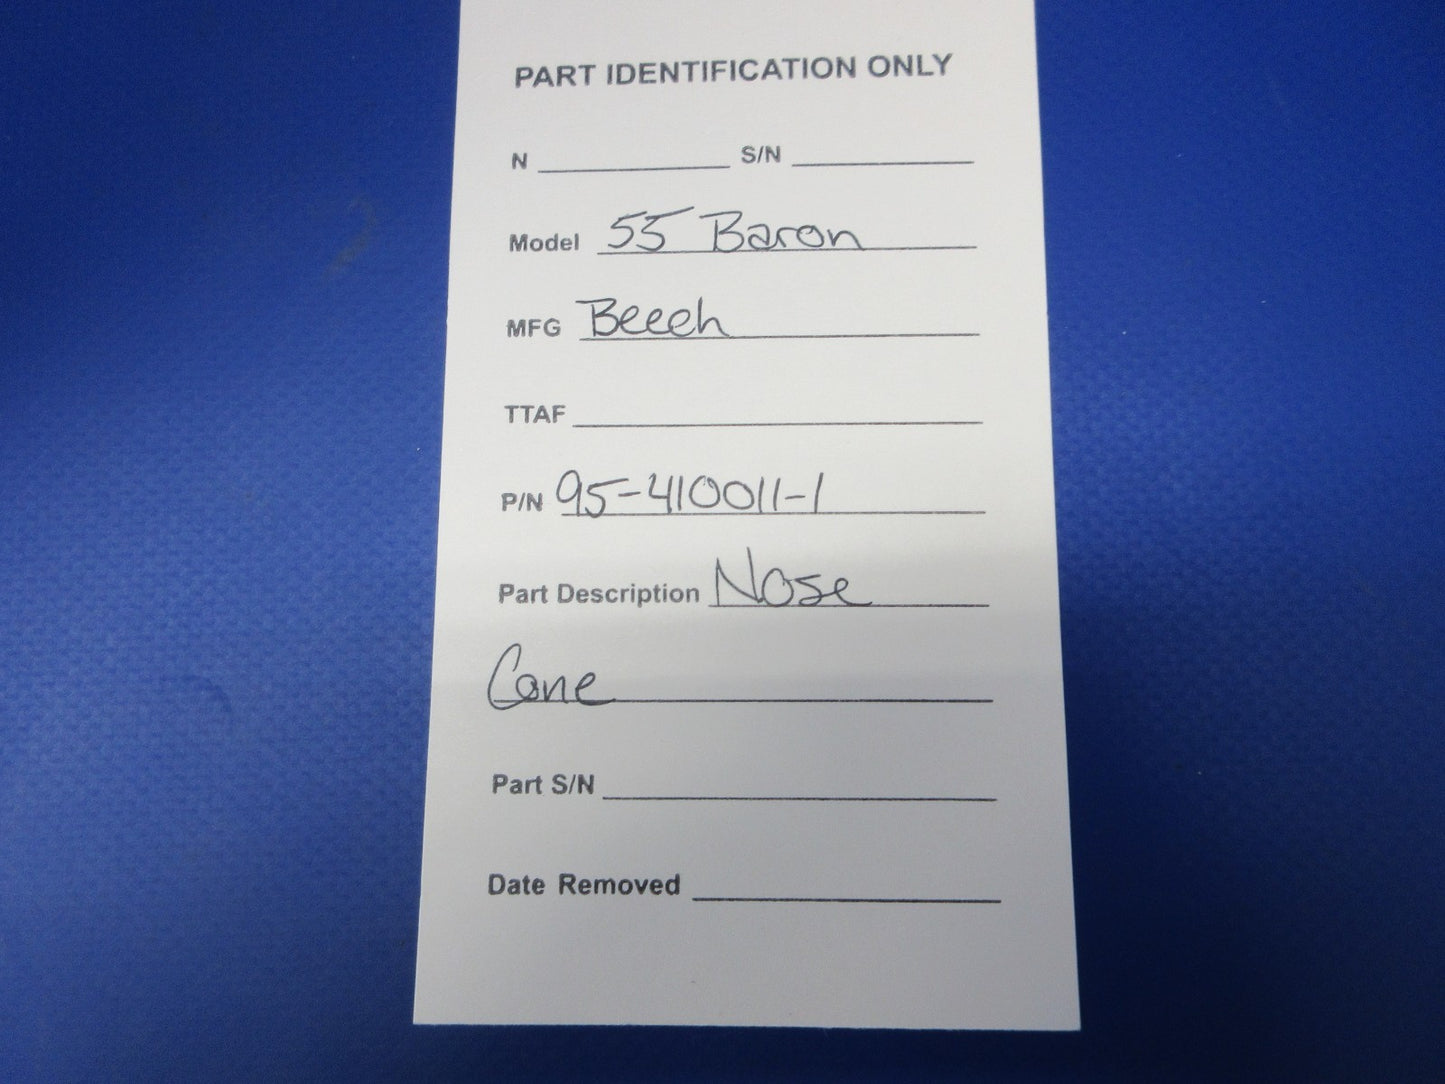 PART IDENTIFICATION ONLY
N S/N
Model 55 Baron
MFG Beech
TTAF
P/N 95-410011-1
Part Description Nose
Cone
Part S/N
Date Removed